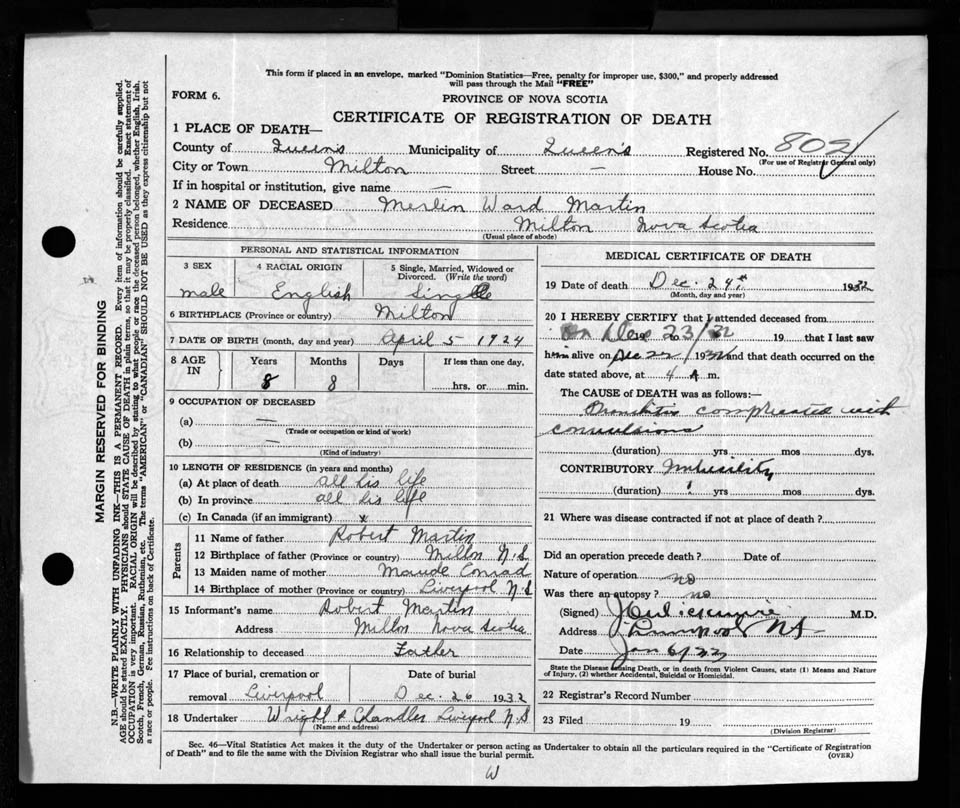 This form if placed in an envelope, marked "Dominion Statistics—Free, penalty for improper use, $300," and properly addressed
will pass through the Mail "FREE"
FORM 6.
PROVINCE OF NOVA SCOTIA
CERTIFICATE OF REGISTRATION OF DEATH
1 PLACE OF DEATH—
County of Queen's Municipality of Queen's Registered No. 802
(For use of Registrar General only)
City or Town Milton Street — House No.
If in hospital or institution, give name —
2 NAME OF DECEASED Merlin Ward Martin
Residence Milton Nova Scotia
(Usual place of abode)
PERSONAL AND STATISTICAL INFORMATION
3 SEX 4 RACIAL ORIGIN 5 Single, Married, Widowed or
Divorced. (Write the word)
male English Single
6 BIRTHPLACE (Province or country) Milton
7 DATE OF BIRTH (month, day and year) April 5 1924
8 AGE IN Years Months Days If less than one day,
8 8 hrs. or min.
9 OCCUPATION OF DECEASED
(a) —
(Trade or occupation or kind of work)
(b) —
(Kind of industry)
10 LENGTH OF RESIDENCE (in years and months)
(a) At place of death all his life
(b) In province all his life
(c) In Canada (if an immigrant) x
Parents
11 Name of father Robert Martin
12 Birthplace of father (Province or country) Milton N.S
13 Maiden name of mother Maude Conrad
14 Birthplace of mother (Province or country) Liverpool N.S
15 Informant's name Robert Martin
Address Milton Nova Scotia
16 Relationship to deceased Father
17 Place of burial, cremation or Date of burial
removal Liverpool Dec. 26 1932
18 Undertaker Wright & Chandler Liverpool N.S
(Name and address)
MEDICAL CERTIFICATE OF DEATH
19 Date of death Dec. 24th 1932
(Month, day and year)
20 I HEREBY CERTIFY that I attended deceased from
on Dec 23/32 19 that I last saw
him alive on Dec 22/1932 and that death occurred on the
date stated above, at 4 A m.
The CAUSE OF DEATH was as follows:—
Bronchitis complicated with
convulsions
(duration) yrs mos dys.
CONTRIBUTORY Imbecility
(duration) yrs mos dys.
21 Where was disease contracted if not at place of death?
Did an operation precede death? Date of
Nature of operation no
Was there an autopsy? no
(Signed) M.D.
Address Liverpool NS
Date Jan 6/33
State the Disease causing Death, or in death from Violent Causes, state (1) Means and Nature
of Injury, (2) whether Accidental, Suicidal or Homicidal.
22 Registrar's Record Number
23 Filed 19
(Division Registrar)
Sec. 46—Vital Statistics Act makes it the duty of the Undertaker or person acting as Undertaker to obtain all the particulars required in the "Certificate of Registration
of Death" and to file the same with the Division Registrar who shall issue the burial permit. (OVER)
W
MARGIN RESERVED FOR BINDING
N.B.—WRITE PLAINLY WITH UNFADING INK—THIS IS A PERMANENT RECORD. Every item of information should be carefully supplied.
AGE should be stated EXACTLY. PHYSICIANS should STATE CAUSE OF DEATH in plain terms, so that it may be properly classified. Exact statement of
OCCUPATION is very important. RACIAL ORIGIN will be described by stating to what people or race the deceased person belonged, whether English, Irish,
Scotch, French, German, Russian, Ruthenian, etc. The terms "AMERICAN" or "CANADIAN" SHOULD NOT BE USED as they express citizenship but not
a race or people. See instructions on back of Certificate.